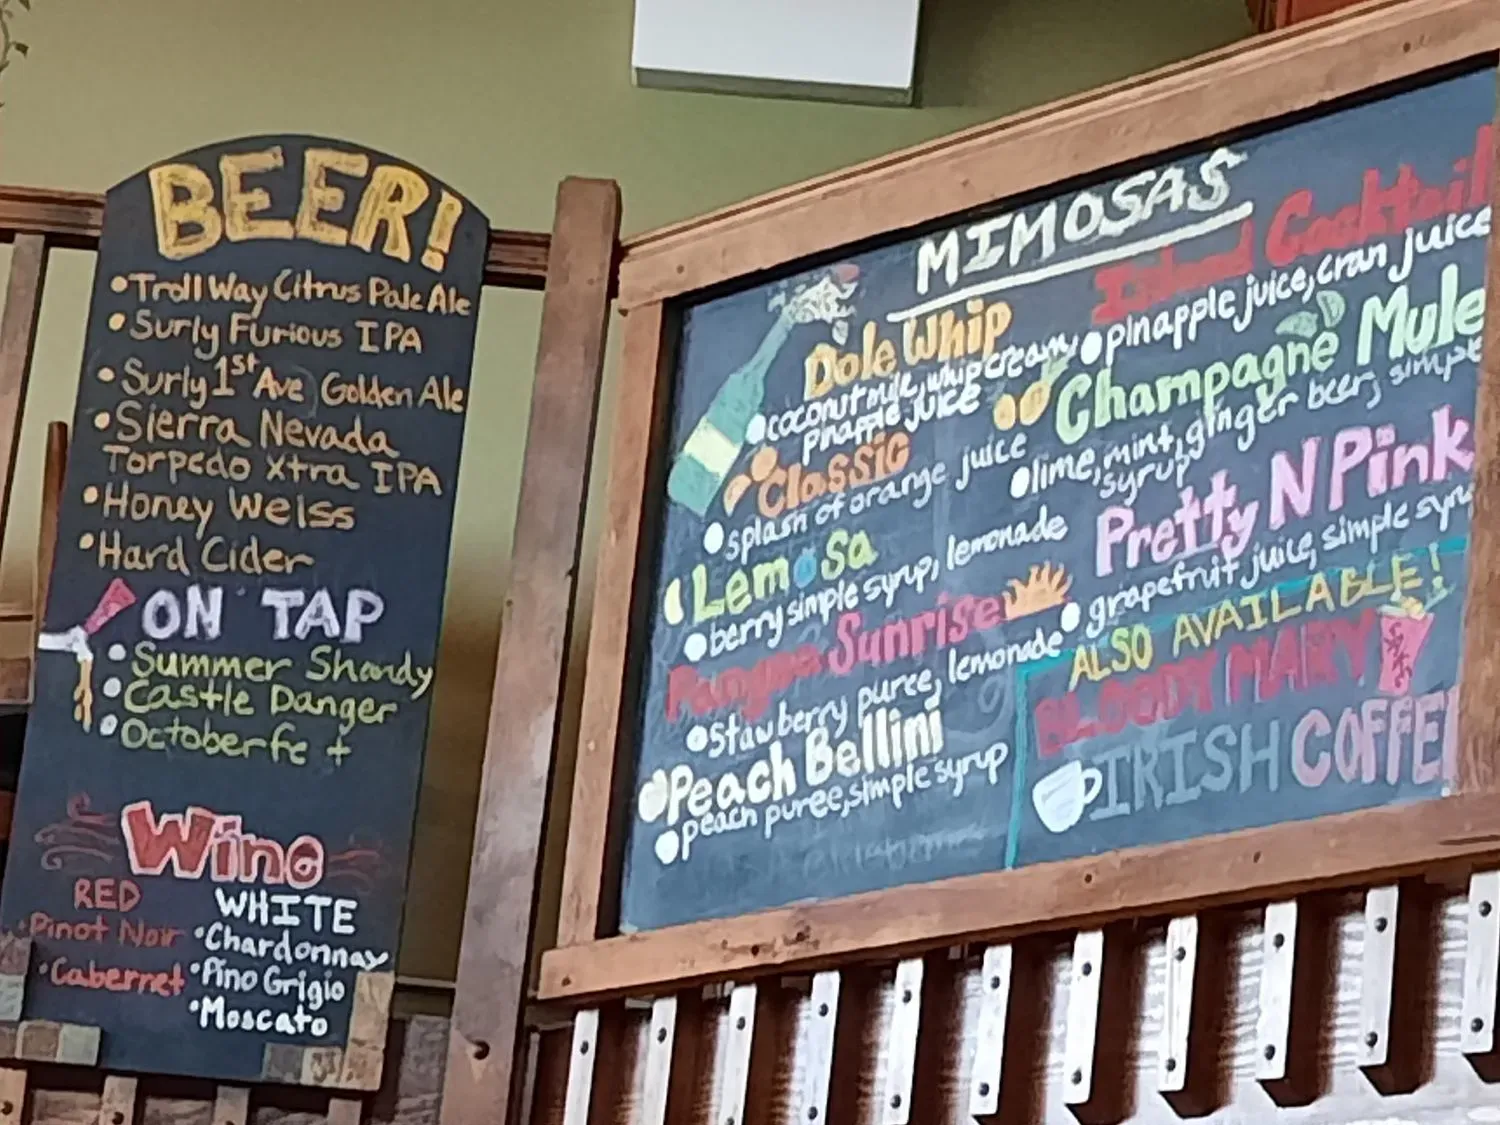 BEER!
•Troll Way Citrus Pale Ale
•Surly Furious IPA
•Surly 1st Ave Golden Ale
•Sierra Nevada
Torpedo Xtra IPA
•Honey Weiss
•Hard Cider
ON TAP
•Summer Shandy
•Castle Danger
•Octoberfe +
Wine
RED
•Pinot Noir
•Cabernet
WHITE
•Chardonnay
•Pino Grigio
•Moscato
MIMOSAS
Dole Whip
•coconut milk, whip cream,
pinapple juice
Classic
•splash of orange juice
Lemosa
•berry simple syrup, lemonade
Sunrise
•Stawberry puree, lemonade
Peach Bellini
•peach puree, simple syrup
Island Cocktail
•pinapple juice, cran juice
Champagne Mule
•lime, mint, ginger beer, simple
syrup
Pretty N Pink
•grapefruit juice, simple syru
ALSO AVAILABLE!
BLOODY MARY
IRISH COFFEE